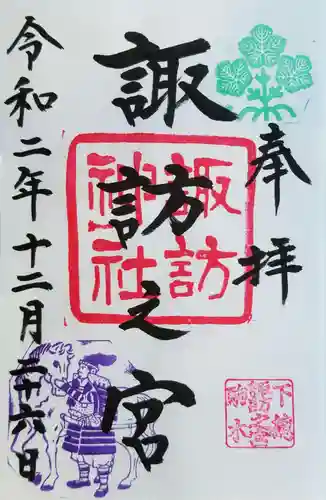 奉拝
諏訪之宮
諏訪神社
令和二年十二月二十六日